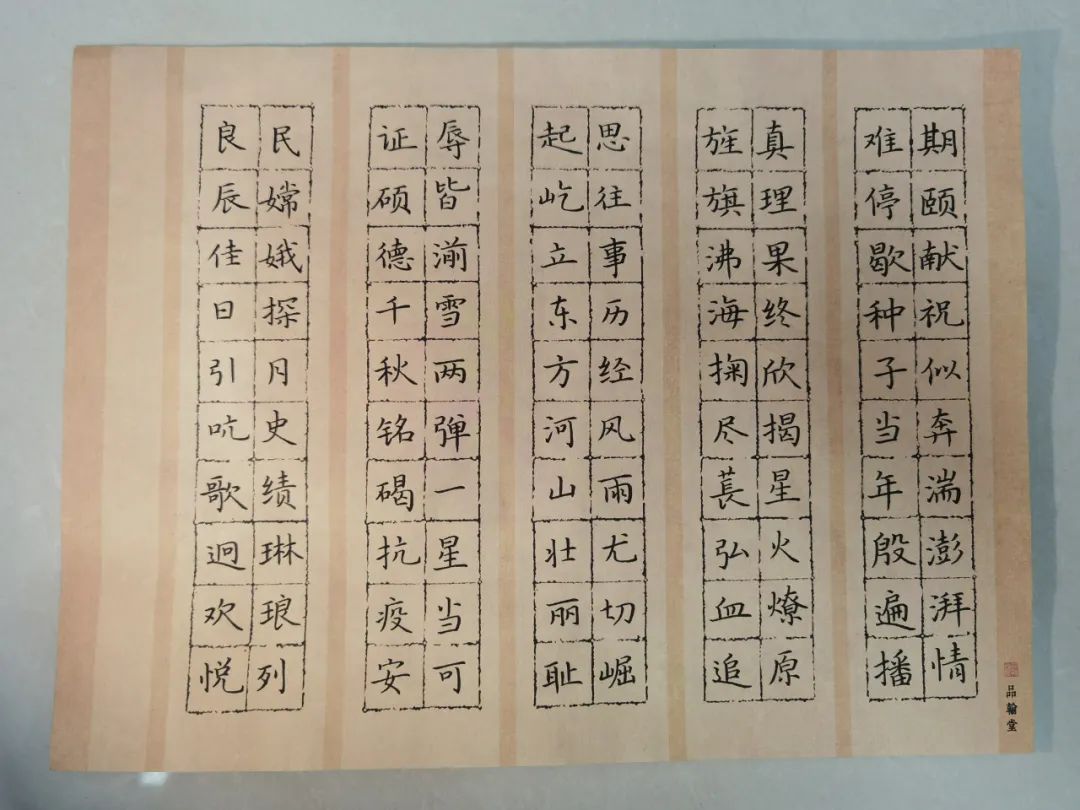 期颐献祝似奔湍澎湃情
难停歇种子当年殷遍播
真理果终欣揭星火燎原
旌旗沸海掬尽萇弘血追
思往事历经风雨尤切崛
起屹立东方河山壮丽耻
辱皆湔雪两弹一星当可
证硕德千秋铭碣抗疫安
民嫦娥探月史绩琳琅列
良辰佳日引吭歌迥欢悦
品翰堂